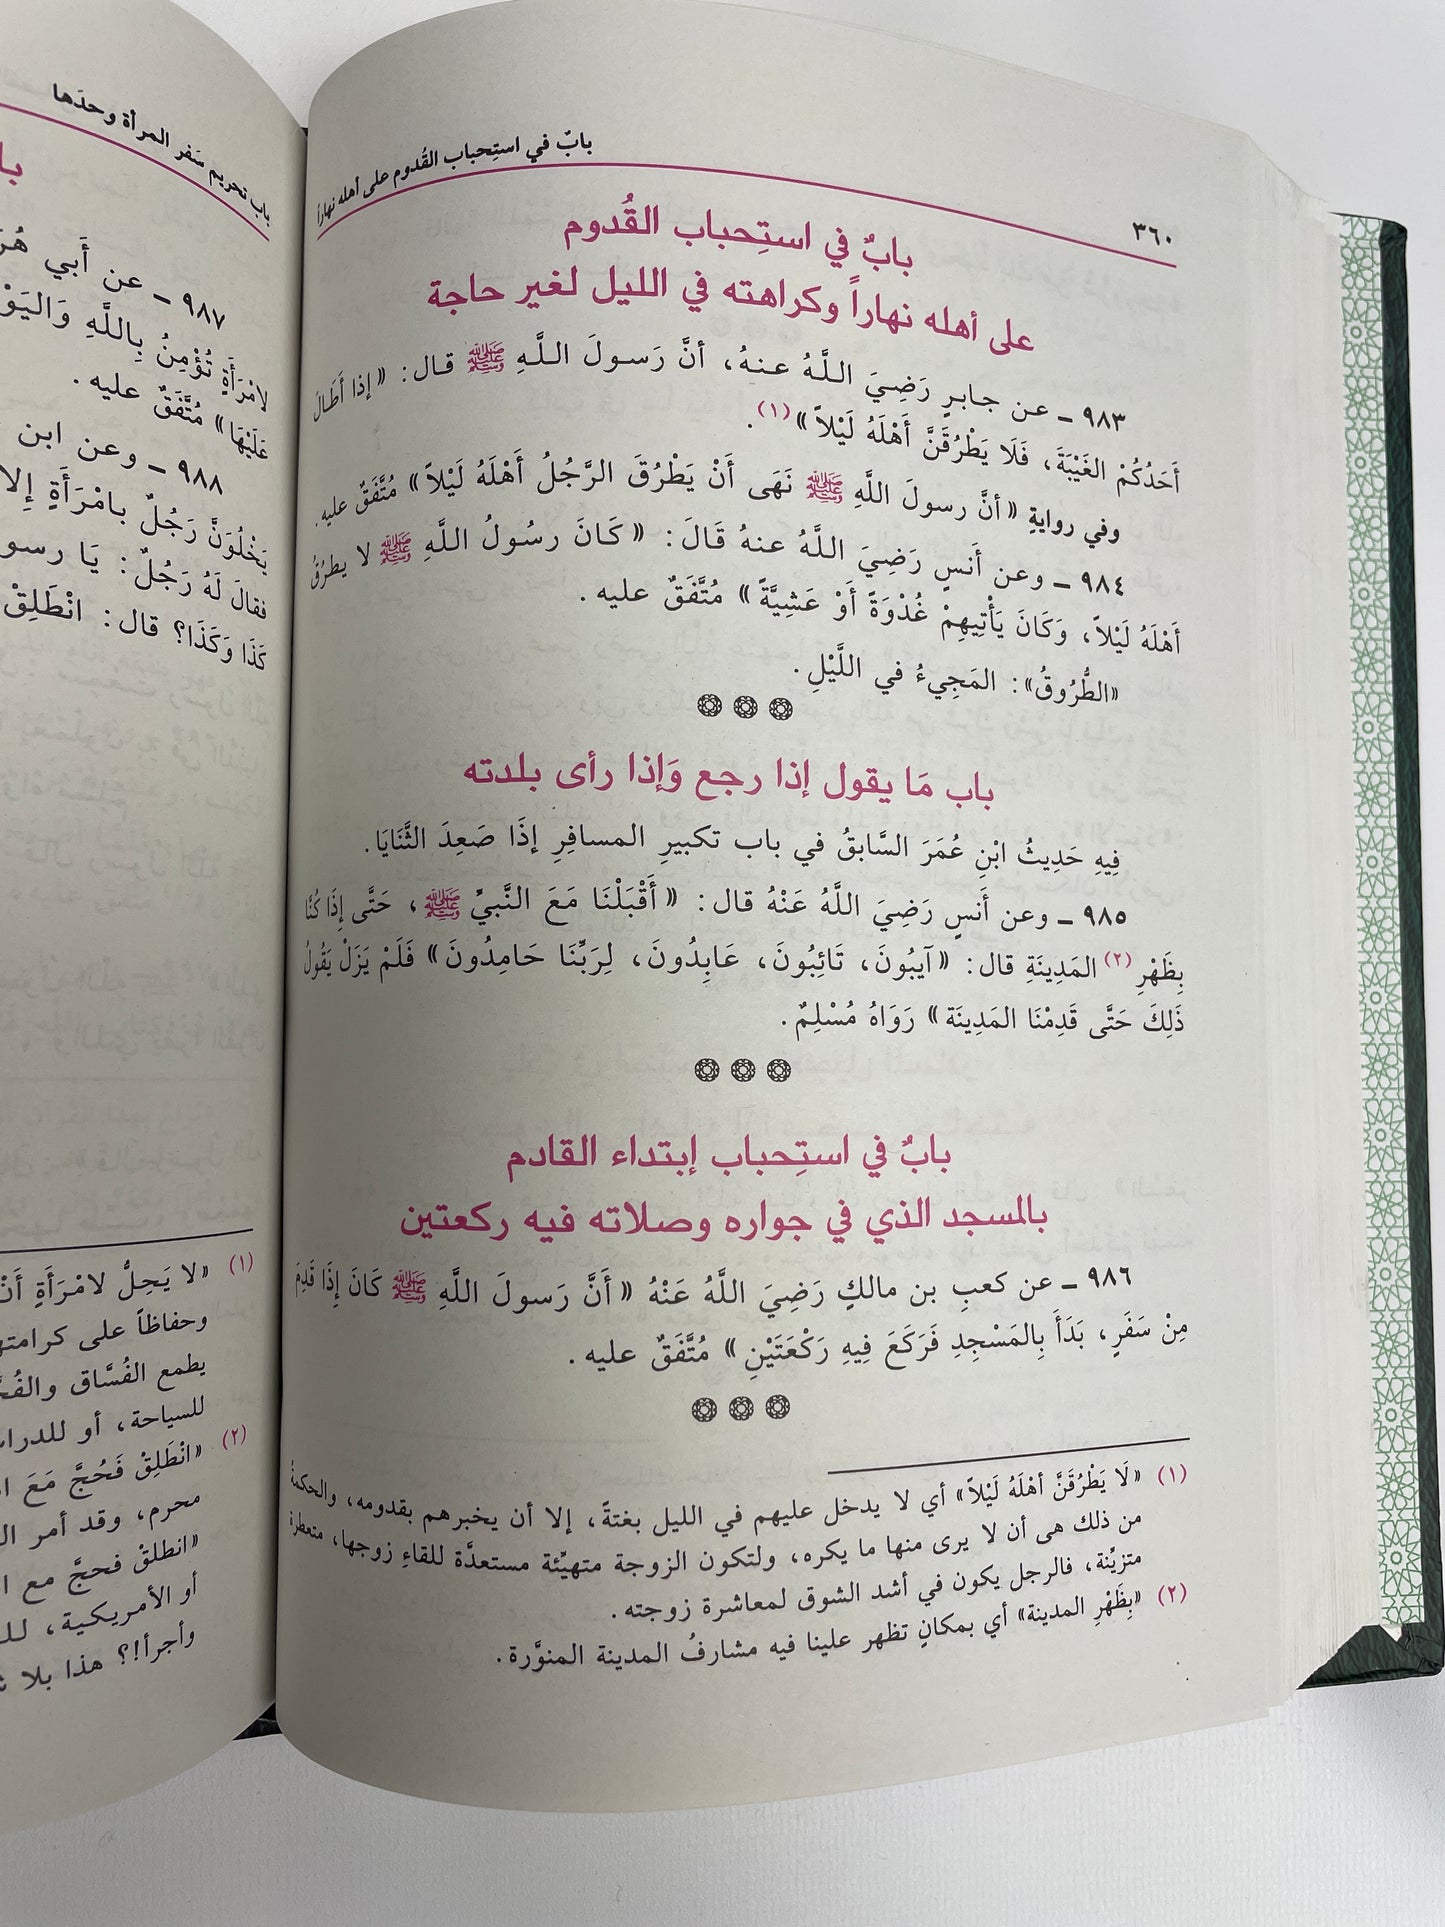 ٣٦٠
بابٌ في استِحباب القُدوم على أهله نهاراً
بابٌ في استِحباب القُدوم
على أهله نهاراً وكراهته في الليل لغير حاجة
٩٨٣ ـ عن جابرٍ رَضِيَ اللَّهُ عنهُ، أنَّ رَسولَ اللَّهِ ﷺ قال: «إذا أَطَالَ
أَحَدُكُمْ الغَيْبَةَ، فَلَا يَطْرُقَنَّ أَهْلَهُ لَيْلاً»(١).
وفي روايةٍ «أنَّ رسولَ اللَّهِ ﷺ نَهَى أَنْ يَطْرُقَ الرَّجُلُ أَهْلَهُ لَيْلاً» مُتَّفَقٌ عليه.
٩٨٤ ـ وعن أَنسٍ رَضِيَ اللَّهُ عنهُ قَالَ: «كَانَ رسُولُ اللَّهِ ﷺ لا يطرُقُ
أَهْلَهُ لَيْلاً، وَكَانَ يَأْتِيهِمْ غُدْوَةً أَوْ عَشِيَّةً» مُتَّفَقٌ عليه.
«الطُّرُوقُ»: المَجِيءُ في اللَّيْلِ.
باب مَا يقول إذا رجع وَإذا رأى بلدته
فِيهِ حَدِيثُ ابْنِ عُمَرَ السَّابقُ في باب تكبيرِ المسافِرِ إذَا صَعِدَ الثَّنَايَا.
٩٨٥ ـ وعن أَنسٍ رَضِيَ اللَّهُ عَنْهُ قال: «أَقْبَلْنَا مَعَ النَّبيِّ ﷺ، حَتَّى إِذَا كُنَّا
بِظَهْرِ(٢) المَدِينَةِ قال: «آيبُونَ، تَائِبُونَ، عَابِدُونَ، لِرَبِّنَا حَامِدُونَ» فَلَمْ يَزَلْ يَقُولُ
ذَلِكَ حَتَّى قَدِمْنَا المَدِينَة» رَوَاهُ مُسْلِمٌ.
بابٌ في استِحباب إبتداء القادم
بالمسجد الذي في جواره وصلاته فيه ركعتين
٩٨٦ ـ عن كعبِ بن مالكٍ رَضِيَ اللَّهُ عَنْهُ «أَنَّ رَسولَ اللَّهِ ﷺ كَانَ إِذَا قَدِمَ
مِنْ سَفَرٍ، بَدَأَ بِالمَسْجِدِ فَرَكَعَ فِيهِ رَكْعَتَيْنِ» مُتَّفَقٌ عليه.
(١) «لَا يَطْرُقَنَّ أهْلَهُ لَيْلاً» أي لا يدخل عليهم في الليل بغتةً، إلا أن يخبرهم بقدومه، والحكمةُ
من ذلك هى أن لا يرى منها ما يكره، ولتكون الزوجة متهيِّئة مستعدَّة للقاءِ زوجها، متعطرة
متزيِّنة، فالرجل يكون في أشد الشوق لمعاشرة زوجته.
(٢) «بِظَهْرِ المدينة» أي بمكانٍ تظهر علينا فيه مشارفُ المدينة المنوَّرة.
باب تحريم سَفر المرأة وحدَها
٩٨٧ ـ عن أَبي
لامْرَأَةٍ تُؤْمِنُ بِاللَّهِ وَاليَوْ
عَلَيْهَا» مُتَّفَقٌ عليه.
٩٨٨ ـ وعن ابن
يَخْلُوَنَّ رَجُلٌ بامْرَأَةٍ إلا
فقالَ لَهُ رَجُلٌ: يَا رسو
كَذَا وَكَذَا؟ قال: انْطَلِقْ
(١) «لا يَحِلُّ لامْرَأَةٍ أَنْ
وحفاظاً على كرامته
يطمع الفُسَّاق والفُجَّ
للسياحة، أو للدراس
(٢) «انْطَلِقْ فَحُجَّ مَعَ ا
محرم، وقد أمر ال
«انطلقْ فحجَّ مع ا
أو الأمريكية، للـ
وأجرأ!؟ هذا بلا